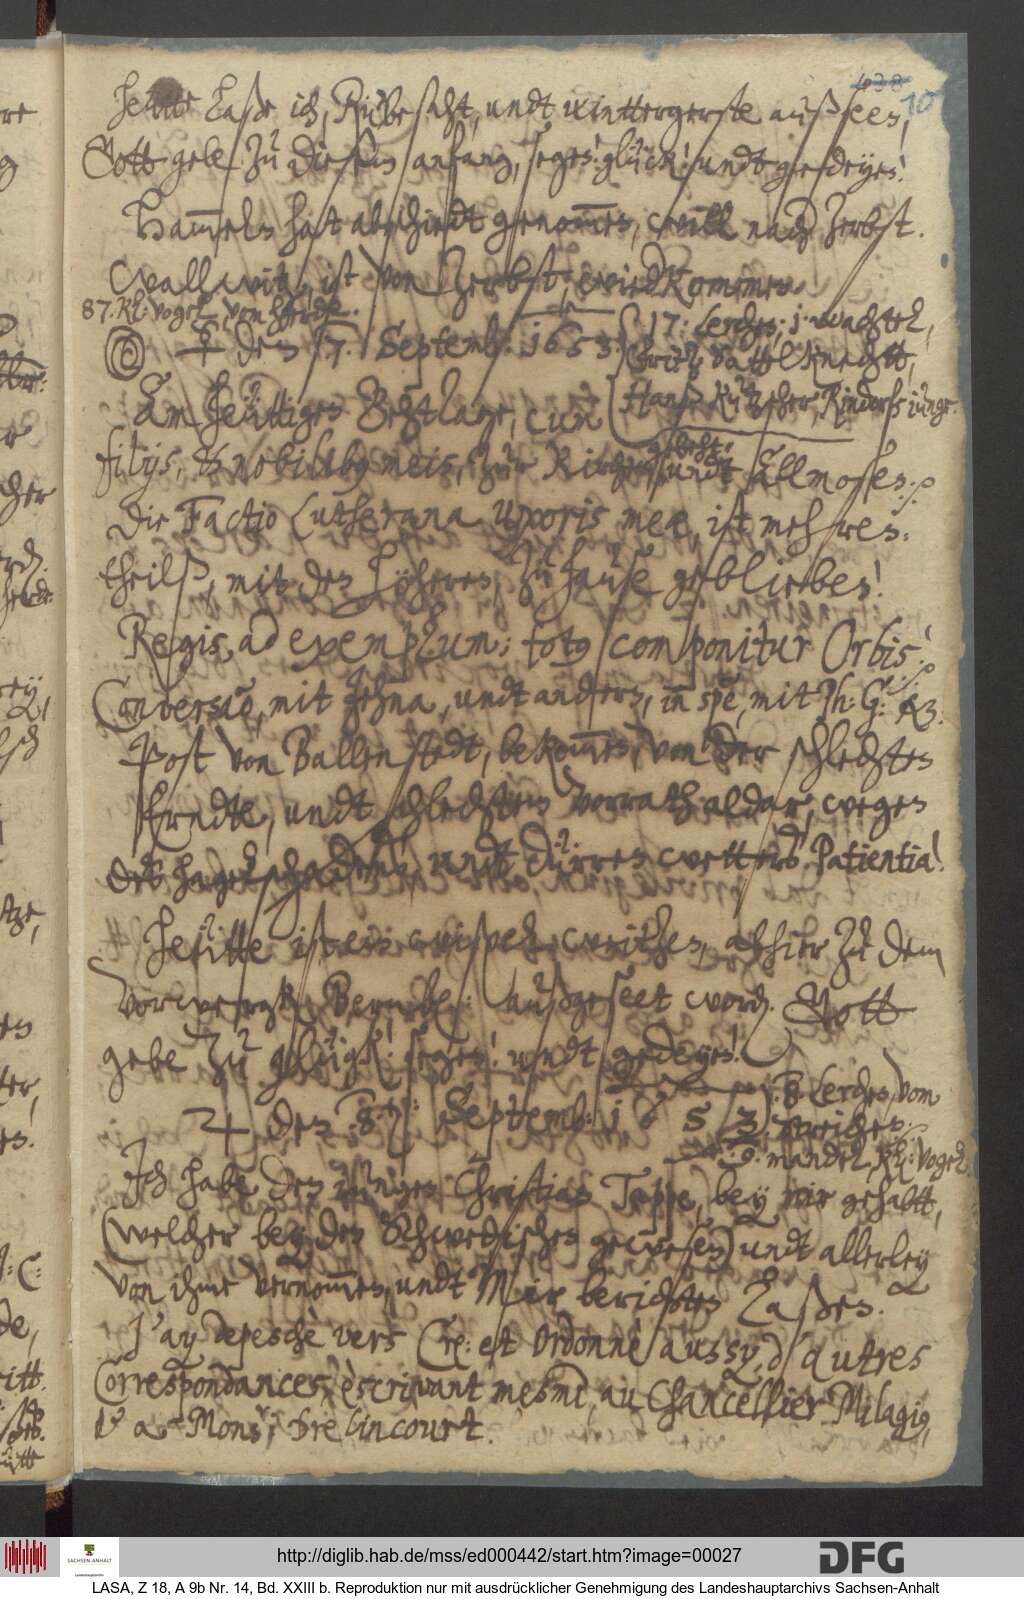 438
10
Heütte laße ich, Rübesahtt, undt wintergerste außseen,
Gott gebe zu diesem anfang, segen! glück! undt gedeyen!
Hammels hat abschiedt genommen, will nach Zerbst.
Wallwitz, ist von Zerbst, wiedkommen.
87. Kl: vogel vom Herde.
☿ den 7. Septemb: 1653.
17: Lerchen; 1. wachtel,
Fritz Sattelknechtt,
Hans Rindorfs iunge.
Am heüttigen Behttage, cum
filijs, & nobilibus meis, zur Kirchen gebeht: undt Allmosen. //
Die Factio Lutherana Uxoris meæ, ist mehren:
theilß, mit den Höheren, zu hause geblieben!
Regis, ad exemplum; totus componitur Orbis! //
Conversatio, mit Jehna, undt andern, in spè, mit Ph: G: R3.
Post von Ballenstedt, bekommen, von der schlechten
Erndte, undt schlechtem vorrath aldar, wegen
des hagelschadens, undt dürren wetters. Patientia!
Heütte ist ein wispel weitzen, alhier zu dem
Vorwergk Bernb: außgeseet word. Gott
gebe zu glügk! segen! undt gedeyen!
♃ den 8ten: Septemb: 1653.
8 Lerchen, vom
streichen.
9. mandel, Kl: vogel
Ich habe den iungen Christian Tappe, bey mir gehabtt,
(welcher bey den Schwedischen gewesen) undt allerley
von ihme vernommen, undt Mir berichten laßen.
J'ay depeschè vers Cre: est ordonnè aussy, d'autres
Correspondances, èscrivant mesme, au Chancellier Milagius,
& a Monsr: Drelincourt.
http://diglib.hab.de/mss/ed000442/start.htm?image=00027
SACHSEN-ANHALT
DFG
LASA, Z 18, A 9b Nr. 14, Bd. XXIII b. Reproduktion nur mit ausdrücklicher Genehmigung des Landeshauptarchivs Sachsen-Anhalt